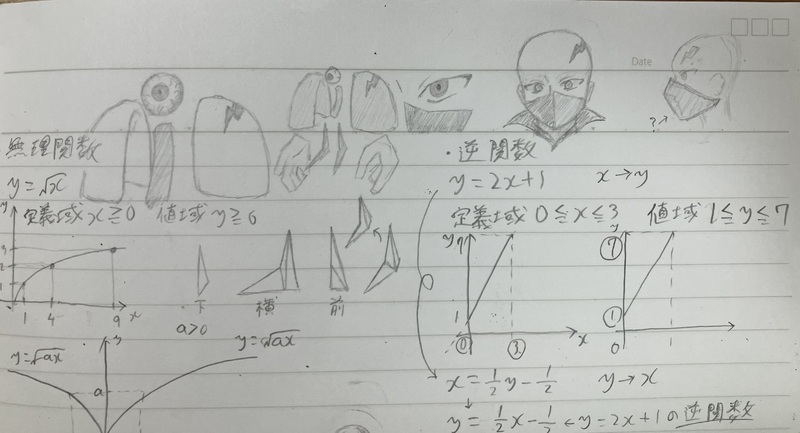 Date
?
無理関数
y=√x
定義域 x≧0 値域 y≧0
y
3
2
1
1 4 9 x
下 横 前
a>0
y=√ax y=√ax
y
a
・逆関数
y=2x+1 x→y
定義域 0≦x≦3 値域 1≦y≦7
y 7
1
0 3 x
y
7
1
0
x=1/2y-1/2 y→x
y=1/2x-1/2 ← y=2x+1の逆関数